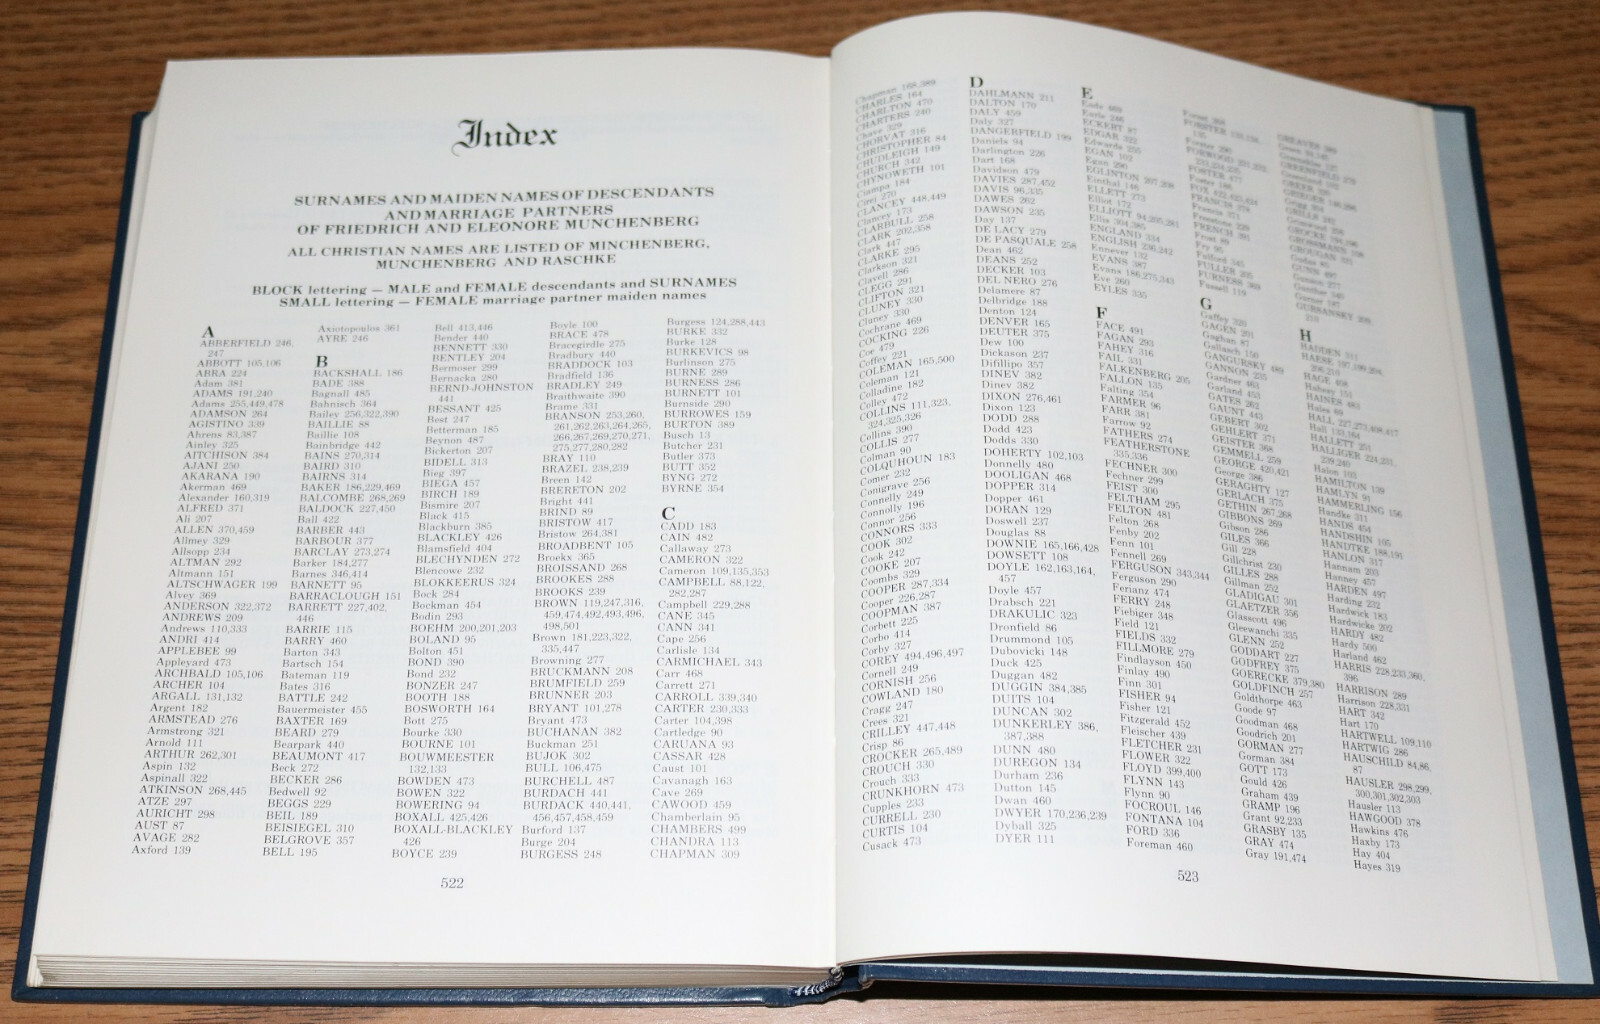 Index
SURNAMES AND MAIDEN NAMES OF DESCENDANTS
AND MARRIAGE PARTNERS
OF FRIEDRICH AND ELEONORE MUNCHENBERG
ALL CHRISTIAN NAMES ARE LISTED OF MINCHENBERG,
MUNCHENBERG AND RASCHKE
BLOCK lettering — MALE and FEMALE descendants and SURNAMES
SMALL lettering — FEMALE marriage partner maiden names
A
ABBERFIELD 246,
247
ABBOTT 105,106
ABRA 224
Adam 381
ADAMS 191,240
Adams 255,449,478
ADAMSON 264
AGISTINO 339
Ahrens 83,387
Ainley 325
AITCHISON 384
AJANI 250
AKARANA 190
Akerman 469
Alexander 160,319
ALFRED 371
Ali 207
ALLEN 370,459
Allmey 329
Allsopp 234
ALTMAN 292
Altmann 151
ALTSCHWAGER 199
Alvey 369
ANDERSON 322,372
ANDREWS 209
Andrews 110,333
ANDRI 414
APPLEBEE 99
Appleyard 473
ARCHBALD 105,106
ARCHER 104
ARGALL 131,132
Argent 182
ARMSTEAD 276
Armstrong 321
Arnold 111
ARTHUR 262,301
Aspin 132
Aspinall 322
ATKINSON 268,445
ATZE 297
AURICHT 298
AUST 87
AVAGE 282
Axford 139
Axiotopoulos 361
AYRE 246
B
BACKSHALL 186
BADE 388
Bagnall 485
Bahnisch 364
Bailey 256,322,390
BAILLIE 88
Baillie 108
Bainbridge 442
BAINS 270,314
BAIRD 310
BAIRNS 314
BAKER 186,229,469
BALCOMBE 268,269
BALDOCK 227,450
Ball 422
BARBER 443
BARBOUR 377
BARCLAY 273,274
Barker 184,277
Barnes 346,414
BARNETT 95
BARRACLOUGH 151
BARRETT 227,402,
446
BARRIE 115
BARRY 460
Barton 343
Bartsch 154
Bateman 119
Bates 316
BATTLE 242
Bauermeister 455
BAXTER 169
BEARD 279
Bearpark 440
BEAUMONT 417
Beck 272
BECKER 286
Bedwell 92
BEGGS 229
BEIL 189
BEISIEGEL 310
BELGROVE 357
BELL 195
Bell 413,446
Bender 440
BENNETT 330
BENTLEY 204
Bermoser 299
Bernacka 280
BERND-JOHNSTON
441
BESSANT 425
Best 247
Betterman 185
Beynon 487
Bickerton 207
BIDELL 313
Bieg 397
BIEGA 457
BIRCH 189
Bismire 207
Black 415
Blackburn 385
BLACKLEY 426
Blamsfield 404
BLECHYNDEN 272
Blencowe 232
BLOKKEERUS 324
Bock 284
Bockman 454
Bodin 293
BOEHM 200,201,203
BOLAND 95
Bolton 451
BOND 390
Bond 232
BONZER 247
BOOTH 188
BOSWORTH 164
Bott 275
Bourke 330
BOURNE 101
BOUWMEESTER
132,133
BOWDEN 473
BOWEN 322
BOWERING 94
BOXALL 425,426
BOXALL-BLACKLEY
426
BOYCE 239
Boyle 100
BRACE 478
Bracegirdle 275
Bradbury 440
BRADDOCK 103
Bradfield 136
BRADLEY 249
Braithwaite 390
Brame 331
BRANSON 253,260,
261,262,263,264,265,
266,267,269,270,271,
275,277,280,282
BRAY 110
BRAZEL 238,239
Breen 142
BRERETON 202
Bright 441
BRIND 89
BRISTOW 417
Bristow 264,381
BROADBENT 105
Broekx 365
BROISSAND 268
BROOKES 288
BROOKS 239
BROWN 119,247,316,
459,474,492,493,496,
498,501
Brown 181,223,322,
335,447
Browning 277
BRUCKMANN 208
BRUMFIELD 259
BRUNNER 203
BRYANT 101,278
Bryant 473
BUCHANAN 382
Buckman 251
BUJOK 302
BULL 106,475
BURCHELL 487
BURDACH 441
BURDACK 440,441,
456,457,458,459
Burford 137
Burge 204
BURGESS 248
Burgess 124,288,443
BURKE 332
Burke 128
BURKEVICS 98
Burlinson 275
BURNE 289
BURNESS 286
BURNETT 101
Burnside 290
BURROWES 159
BURTON 389
Busch 13
Butcher 231
Butler 373
BUTT 352
BYNG 272
BYRNE 354
C
CADD 183
CAIN 482
Callaway 273
CAMERON 322
Cameron 109,135,353
CAMPBELL 88,122,
282,287
Campbell 229,288
CANE 345
CANN 341
Cape 256
Carlisle 134
CARMICHAEL 343
Carr 468
Carrett 271
CARROLL 339,340
CARTER 230,333
Carter 104,398
Cartledge 90
CARUANA 93
CASSAR 428
Caust 101
Cavanagh 163
Cave 269
CAWOOD 459
Chamberlain 95
CHAMBERS 499
CHANDRA 113
CHAPMAN 309
522
CHARLES 164
CHARLTON 470
CHARTERS 240
Chave 329
CHORVAT 316
CHRISTOPHER 84
CHUDLEIGH 149
CHURCH 342
CHYNOWETH 101
Ciampa 184
Cirei 270
CLANCEY 448,449
Clancey 173
CLARBULL 258
CLARK 202,358
Clark 447
CLARKE 295
Clarkson 321
Clavell 286
CLEGG 291
CLIFTON 321
CLUNEY 330
Cluney 330
Cochrane 469
COCKING 226
Coe 479
Coffey 221
COLEMAN 165,500
Coleman 121
Colladine 182
Colley 472
COLLINS 111,323,
324,325,326
Collins 390
COLLIS 277
Colman 90
COLQUHOUN 183
Comer 232
Conigrave 256
Connelly 249
Connolly 196
Connor 256
CONNORS 333
COOK 302
Cook 242
COOKE 207
Coombs 329
COOPER 287,334
Cooper 226,287
COOPMAN 387
Corbett 225
Corbo 414
Corby 327
COREY 494,496,497
Cornell 249
CORNISH 256
COWLAND 180
Cragg 247
Crees 321
CRILLEY 447,448
Crisp 86
CROCKER 265,489
CROUCH 330
Crouch 333
CRUNKHORN 473
Cupples 233
CURRELL 230
CURTIS 104
Cusack 473
D
DAHLMANN 211
DALTON 170
DALY 459
Daly 327
DANGERFIELD 199
Daniels 94
Darlington 226
Dart 168
Davidson 479
DAVIES 287,452
DAVIS 96,335
DAWES 262
DAWSON 235
Day 137
DE LACY 279
DE PASQUALE 258
Dean 462
DEANS 252
DECKER 103
DEL NERO 276
Delamere 87
Delbridge 188
Denton 124
DENVER 165
DEUTER 375
Dew 100
Dickason 237
Difillipo 357
DINEV 382
Dinev 382
DIXON 276,461
Dixon 123
DODD 288
Dodd 423
Dodds 330
DOHERTY 102,103
Donnelly 480
DOOLIGAN 468
DOPPER 314
Dopper 461
DORAN 129
Doswell 237
Douglas 88
DOWNIE 165,166,428
DOWSETT 108
DOYLE 162,163,164,
457
Doyle 457
Drabsch 221
DRAKULIC 323
Dronfield 86
Drummond 105
Dubovichi 148
Duck 425
Duggan 482
DUGGIN 384,385
DUITS 104
DUNCAN 302
DUNKERLEY 386,
387,388
DUNN 480
DUREGON 134
Durham 236
Dutton 145
Dwan 460
DWYER 170,236,239
Dyball 325
DYER 111
E
Earle 246
ECKERT 87
EDGAR 322
Edwards 255
EGAN 103
Egan 295
EGLINTON 297,298
Einthal 146
ELLETT 273
Elliot 172
ELLIOTT 94,205,281
Ellis 304,385
ENGLAND 334
ENGLISH 236,242
Ennever 132
EVANS 387
Evans 186,275,343
Eve 260
EYLES 335
F
FACE 491
FAGAN 293
FAHEY 316
FAIL 331
FALKENBERG 205
FALLON 135
Falting 354
FARMER 96
FARR 381
Farrow 92
FATHERS 274
FEATHERSTONE
335,336
FECHNER 300
Fechner 299
FEIST 300
FELTHAM 295
FELTON 481
Felton 268
Fenby 202
Fenn 101
Fennell 269
FERGUSON 343,344
Ferguson 290
Ferianz 474
FERRY 248
Fiebiger 348
Field 121
FIELDS 332
FILLMORE 279
Findlayson 450
Finlay 490
Finn 301
FISHER 94
Fisher 121
Fitzgerald 452
Fleischer 439
FLETCHER 231
FLOWER 322
FLOYD 399,400
FLYNN 143
Flynn 90
FOCROUL 146
FONTANA 104
FORD 336
Foreman 460
FOSTER 477
FRENCH 391
Frost 89
Fry 95
Fulford 345
FULLER 205
FURNESS 369
Fussell 119
G
Gaffey 320
GAGEN 201
Gaghan 87
Gallasch 150
GANGURSKY 489
GANNON 235
Gardner 463
Garland 453
GATES 262
GAUNT 443
GEBERT 302
GEHLERT 371
GEISTER 368
GEMMELL 259
GEORGE 420,421
George 386
GERAGHTY 127
GERLACH 375
GETHIN 267,268
GIBBONS 269
Gibson 286
GILES 366
Gill 228
Gillchrist 230
GILLES 288
Gillman 252
GLADIGAU 301
GLAETZER 356
Glasscott 496
Gleewanchi 335
GLENN 252
GODDART 227
GODFREY 375
GOERECKE 379,380
GOLDFINCH 257
Goldthorpe 463
Goode 97
Goodman 468
Goodrich 201
GORMAN 277
Gorman 384
GOTT 173
Gould 426
Graham 439
GRAMP 196
Grant 92,233
GRASBY 135
GRAY 474
Gray 191,474
H
HADDEN 311
HAGE 408
HAINES 463
HALLETT 251
HALLIGER 224,231,
239,240
HAMILTON 139
HAMLYN 91
HAMMERLING 156
Handke 311
HANDS 454
HANDSHIN 105
HANDTKE 188,191
HANLON 317
Hannam 203
Hanney 457
HARDEN 497
Harding 232
Hardwick 183
Hardwicke 202
HARDY 482
Hardy 500
Harland 462
HARRIS 228,233,360,
396
HARRISON 289
Harrison 228,331
HART 342
Hart 170
HARTWELL 109,110
HARTWIG 286
HAUSCHILD 84,86,
87
HAUSLER 298,299,
300,301,302,303
Hausler 113
HAWGOOD 378
Hawkins 476
Haxby 173
Hay 404
Hayes 319
523